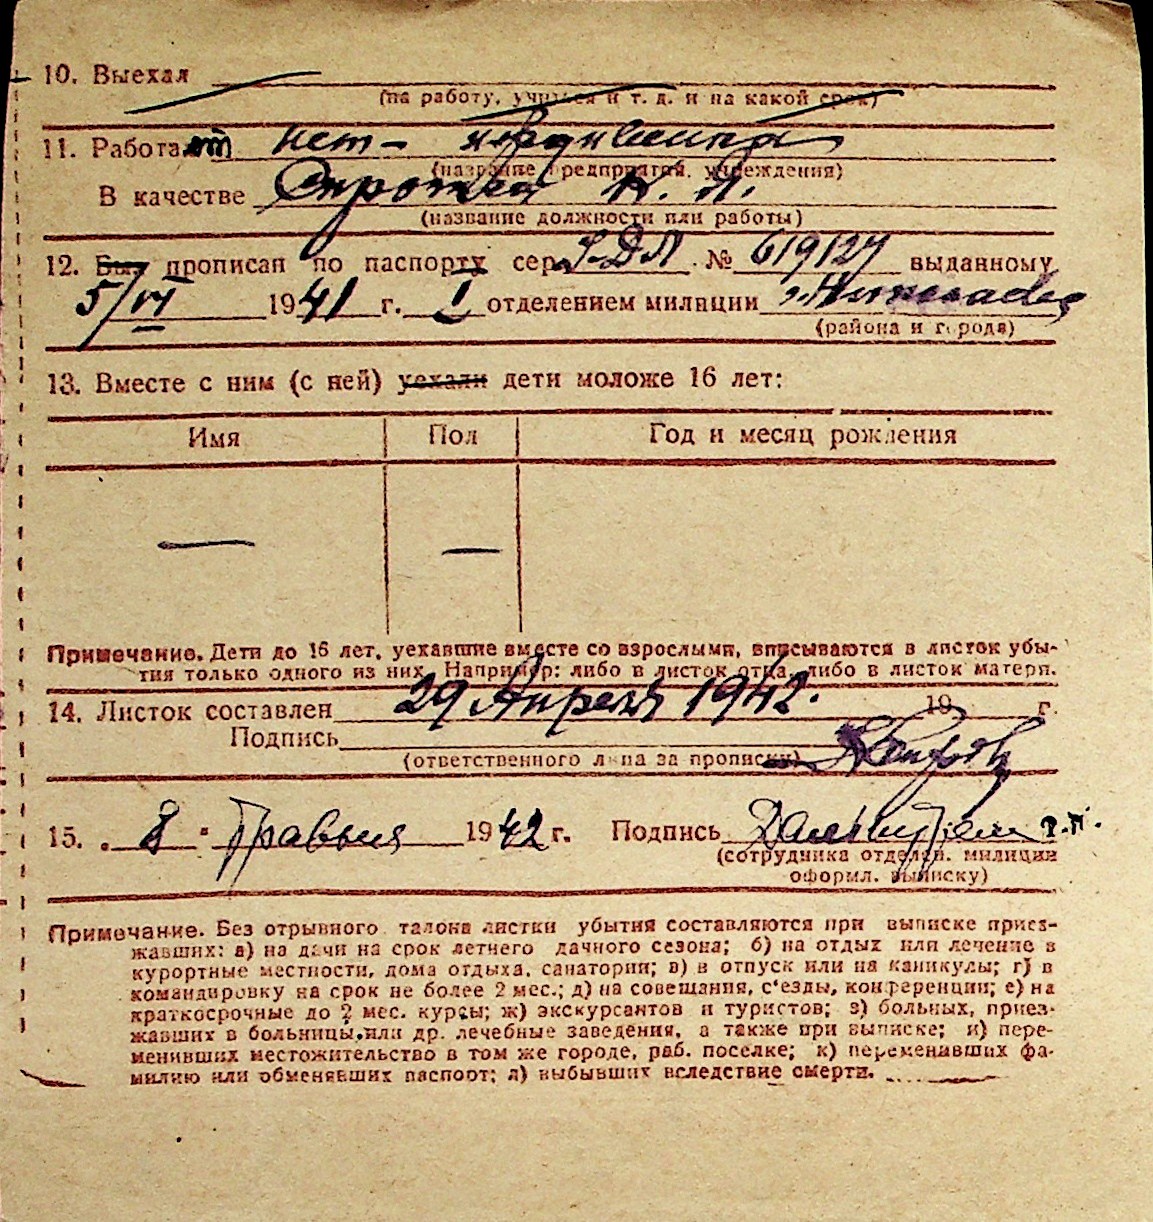 10. Выехал
(на работу, учиться и т. д. и на какой срок)
11. Работает нет –
(название предприятия, учреждения)
В качестве К. П.
(название должности или работы)
12. Был прописан по паспорту сер. № 619127 выданному
5/VI 1941 г. I отделением милиции г. Николаева
(района и города)
13. Вместе с ним (с ней) уехали дети моложе 16 лет:
Имя Пол Год и месяц рождения
— —
Примечание. Дети до 16 лет, уехавшие вместе со взрослыми, вписываются в листок убы-
тия только одного из них. Например: либо в листок отца, либо в листок матери.
14. Листок составлен 29 Апреля 1942. 19 г.
Подпись
(ответственного лица за прописку)
15. „ 8 " Травня 1942 г. Подпись
(сотрудника отделен. милиции
оформл. выписку)
Примечание. Без отрывного талона листки убытия составляются при выписке приез-
жавших: а) на дачи на срок летнего дачного сезона; б) на отдых или лечение в
курортные местности, дома отдыха, санатории; в) в отпуск или на каникулы; г) в
командировку на срок не более 2 мес.; д) на совещания, с'езды, конференции; е) на
краткосрочные до 2 мес. курсы; ж) экскурсантов и туристов; з) больных, приез-
жавших в больницы, или др. лечебные заведения, а также при выписке; и) пере-
менивших местожительство в том же городе, раб. поселке; к) переменивших фа-
милию или обменявших паспорт; л) выбывших вследствие смерти.